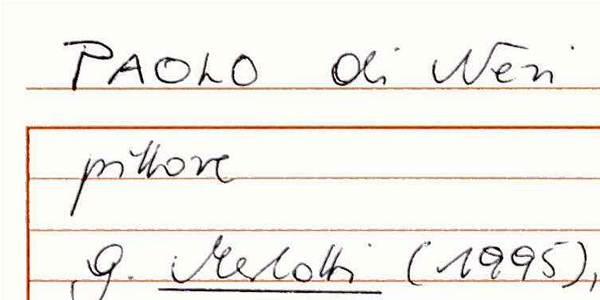 PAOLO di Neri
pittore
G. Merlotti (1995),